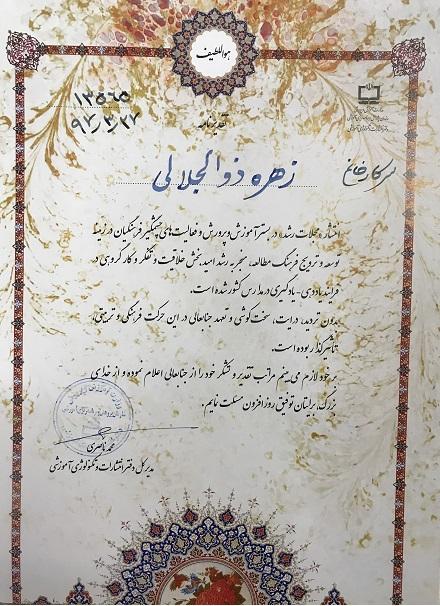 هواللطیف
۱۳۵۶۵
۹۲٫۳٫۲۷
تقدیرنامه
سرکار خانم زهره ذوالجلالی
انتشار مجلات رشد، در بستر آموزش و پرورش و فعالیت‌های چشمگیر فرهنگیان در زمینهٔ
توسعه و ترویج فرهنگ مطالعه، منجر به رشد امیدبخش خلاقیت و تفکر و کار گروهی در
فرایند یاددهی-یادگیری در مدارس کشور شده است.
بدون تردید، درایت، سخت‌کوشی و تعهد جنابعالی در این حرکت فرهنگی و تربیتی،
تأثیرگذار بوده است.
بر خود لازم می‌بینم مراتب تقدیر و تشکر خود را از جنابعالی اعلام نموده و از خدای
بزرگ، برایتان توفیق روزافزون مسئلت نمایم.
محمد ناصری
مدیرکل دفتر انتشارات و تکنولوژی آموزشی